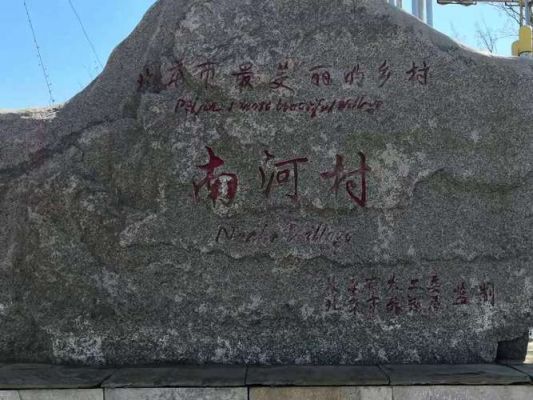 北京市最美丽的乡村
Beijing's most beautiful village
南河村
Nanhe Village
北京市农工委
北京市旅游局 监制